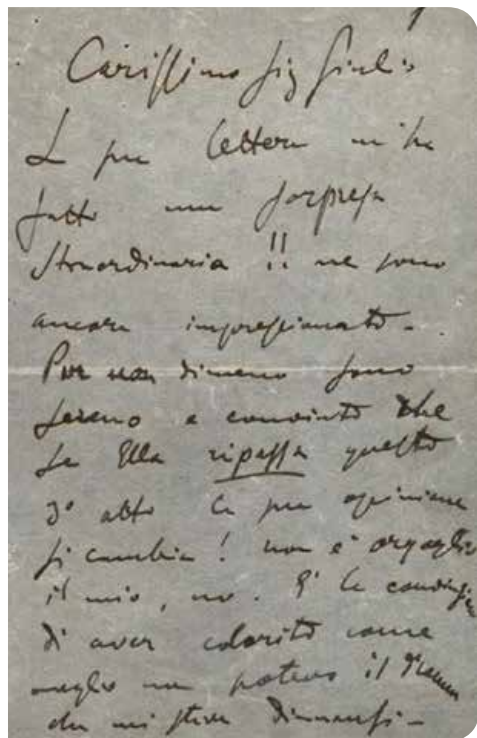 Carissimo Sig Giulio
La sua lettera m'ha
fatto una sorpresa
straordinaria !! ne sono
ancora impressionato -
Pur non dimeno sono
sereno e convinto che
se Ella ripassa questo
3º atto la sua opinione
si cambia ! non è orgoglio
il mio, no. È la convinzione
di aver colorito come
meglio non potevo il dramma
che mi stava dinnanzi -